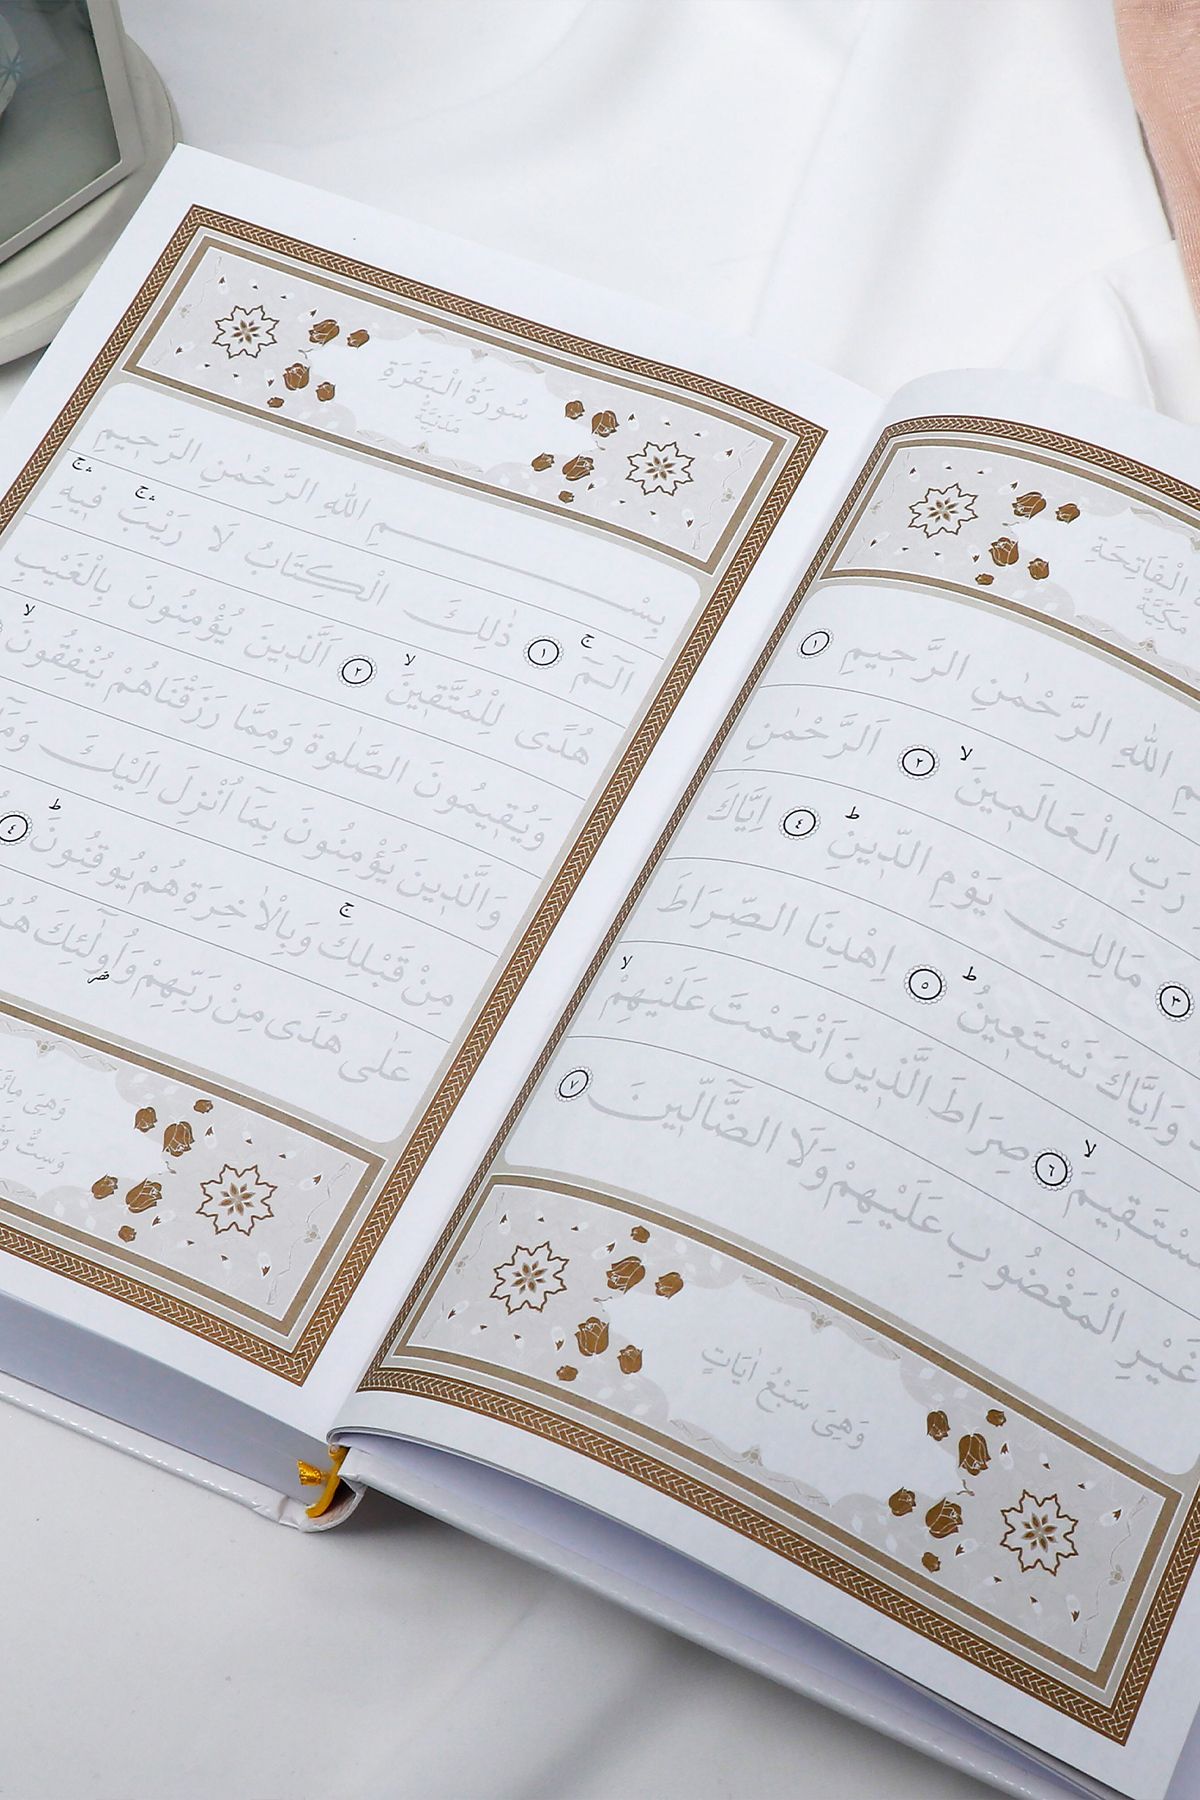 الْفَاتِحَةِ
مَكِّيَّةٌ
اللّٰهِ الرَّحْمٰنِ الرَّحِيمِ ١
رَبِّ الْعَالَمِينَ ٢ اَلرَّحْمٰنِ
٣ مَالِكِ يَوْمِ الدِّينِ ٤ اِيَّاكَ
وَاِيَّاكَ نَسْتَعِينُ ٥ اِهْدِنَا الصِّرَاطَ
٦ صِرَاطَ الَّذِينَ اَنْعَمْتَ عَلَيْهِمْ
غَيْرِ الْمَغْضُوبِ عَلَيْهِمْ وَلَا الضَّالِّينَ ٧
وَهِيَ سَبْعُ اٰيَاتٍ
سُورَةُ الْبَقَرَةِ
مَدَنِيَّةٌ
بِسْمِ اللّٰهِ الرَّحْمٰنِ الرَّحِيمِ
الٓمٓ ١ ذٰلِكَ الْكِتَابُ لَا رَيْبَ فِيهِ
هُدًى لِلْمُتَّقِينَ ٢ اَلَّذِينَ يُؤْمِنُونَ بِالْغَيْبِ
وَيُقِيمُونَ الصَّلٰوةَ وَمِمَّا رَزَقْنَاهُمْ يُنْفِقُونَ
وَالَّذِينَ يُؤْمِنُونَ بِمَٓا اُنْزِلَ اِلَيْكَ وَمَٓا
مِنْ قَبْلِكَ وَبِالْاٰخِرَةِ هُمْ يُوقِنُونَ ٤
عَلٰى هُدًى مِنْ رَبِّهِمْ وَاُولٰٓئِكَ
وَهِيَ